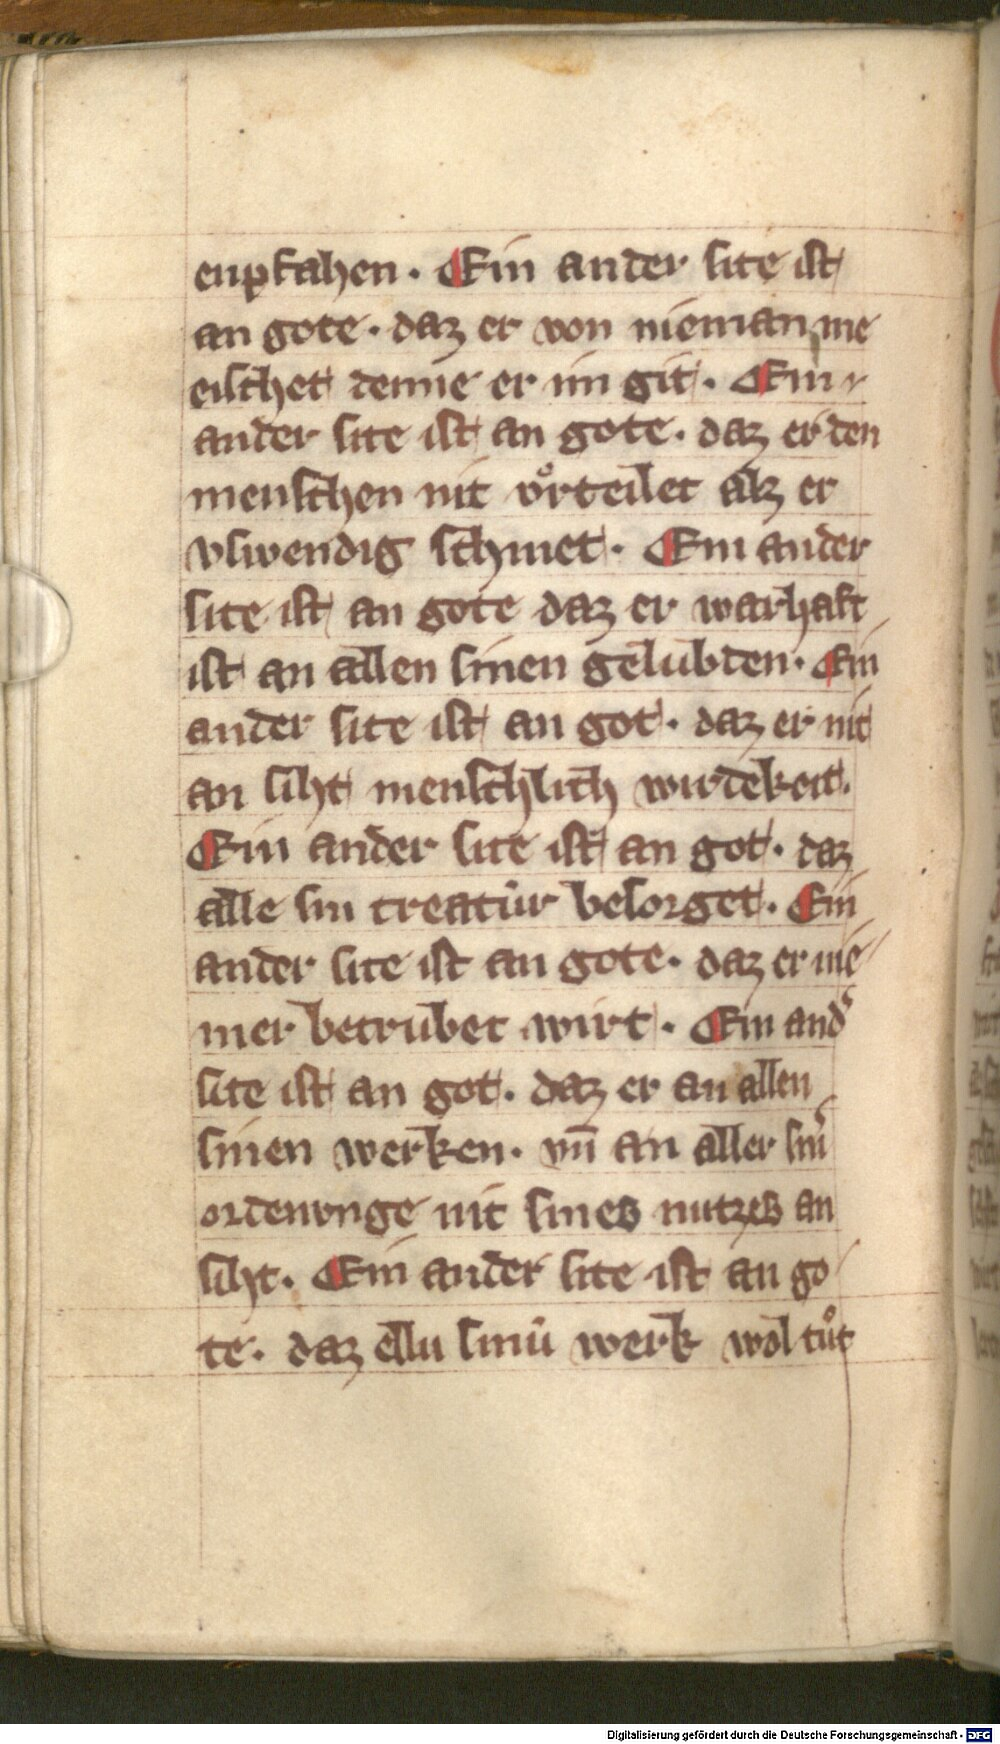 enpfahen · Ein ander site ist
an gote · daz er von nieman me
eischet denne er im git · Ein
ander site ist an gote · daz er den
menschen nit voͤrteilet alz er
vswendig schinet · Ein ander
site ist an gote daz er warhaft
ist an allen sinen gelubden · Ein
ander site ist an got · daz er nit
an siht menschlich wirdekeit.
Ein ander site ist an got · daz
alle sin creatûr besorget · Ein
ander site ist an gote · daz er nie
mer betrubet wirt · Ein and͛
site ist an got · daz er an allen
sinen werken · vn̄ an aller sin͛
ordenvnge nit sines nutzes an
siht · Ein ander site ist an go
te · daz ellu sinû werk wol tuͦt
Digitalisierung gefördert durch die Deutsche Forschungsgemeinschaft - DFG